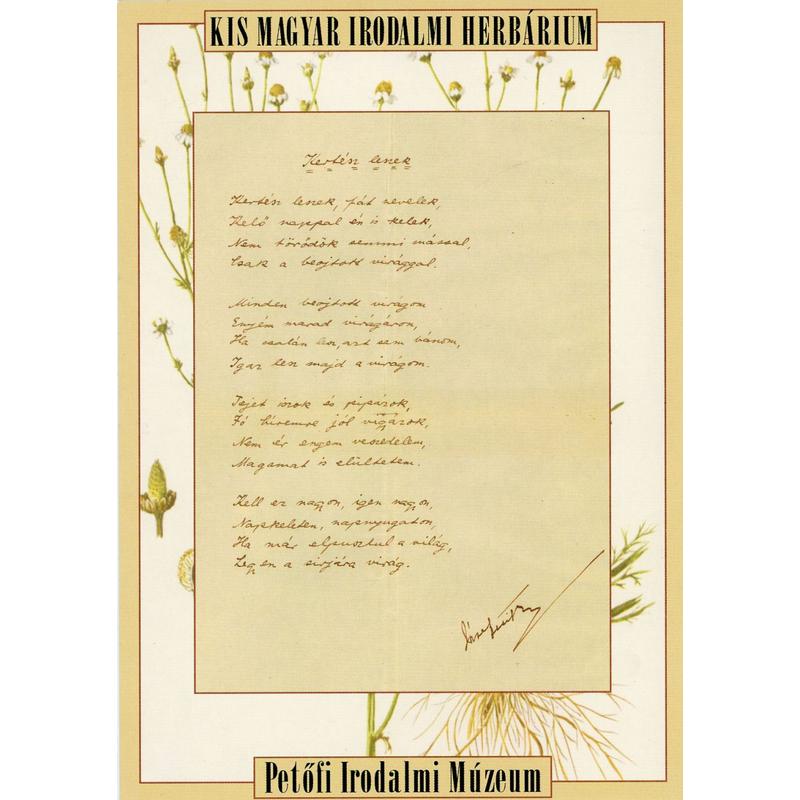 KIS MAGYAR IRODALMI HERBÁRIUM
Kertész leszek
Kertész leszek, fát nevelek,
Kelő nappal én is kelek,
Nem törődök semmi mással,
Csak a beojtott virággal.
Minden beojtott virágom
Enyém marad virágáron,
Ha csalán lesz, azt sem bánom,
Igaz lesz majd a virágom.
Tejet iszok és pipázok,
Jó híremre jól vigyázok,
Nem ér engem veszedelem,
Magamat is elültetem.
Kell ez nagyon, igen nagyon,
Napkeleten, napnyugaton,
Ha már elpusztul a világ,
Legyen a sírjára virág.
Petőfi Irodalmi Múzeum